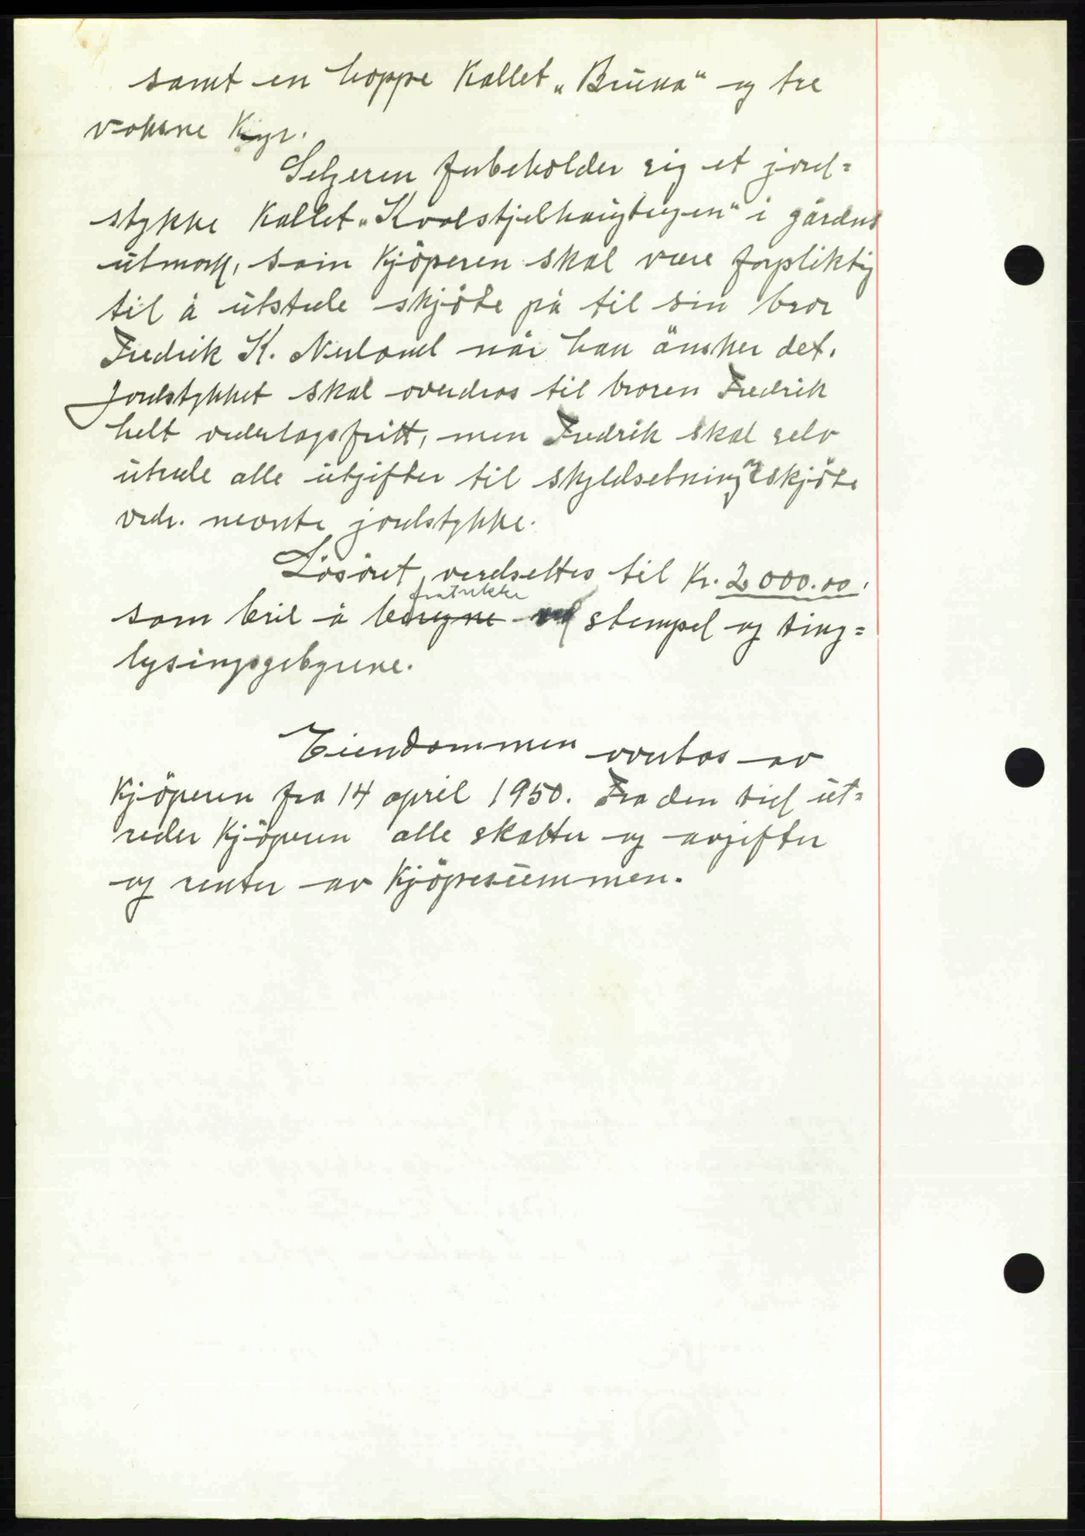 samt en hoppe kallet „Bruna" og tre
voksne kyr.
Selgeren forbeholder sig et jord=
stykke kallet „Kvalstjelhaugteigen" i gårdens
utmark, som kjöperen skal være forpliktig
til å utstede skjöte på til sin bror
Fredrik K. Nerland når han önsker det.
Jordstykket skal overdras til broren Fredrik
helt vederlagsfritt, men Fredrik skal selv
utrede alle utgifter til skyldsetning og skjöte
vedr. nevnte jordstykke.
Lösöret verdsettes til kr. 2000.00,
fratrekke
som bed å beregne ved stempel og ting=
lysingsgebyrene.
Eiendommen overtas av
kjöperen fra 14 april 1950. Fra den tid ut=
reder kjöperen alle skatter og avgifter
og renter av kjöpesummen.